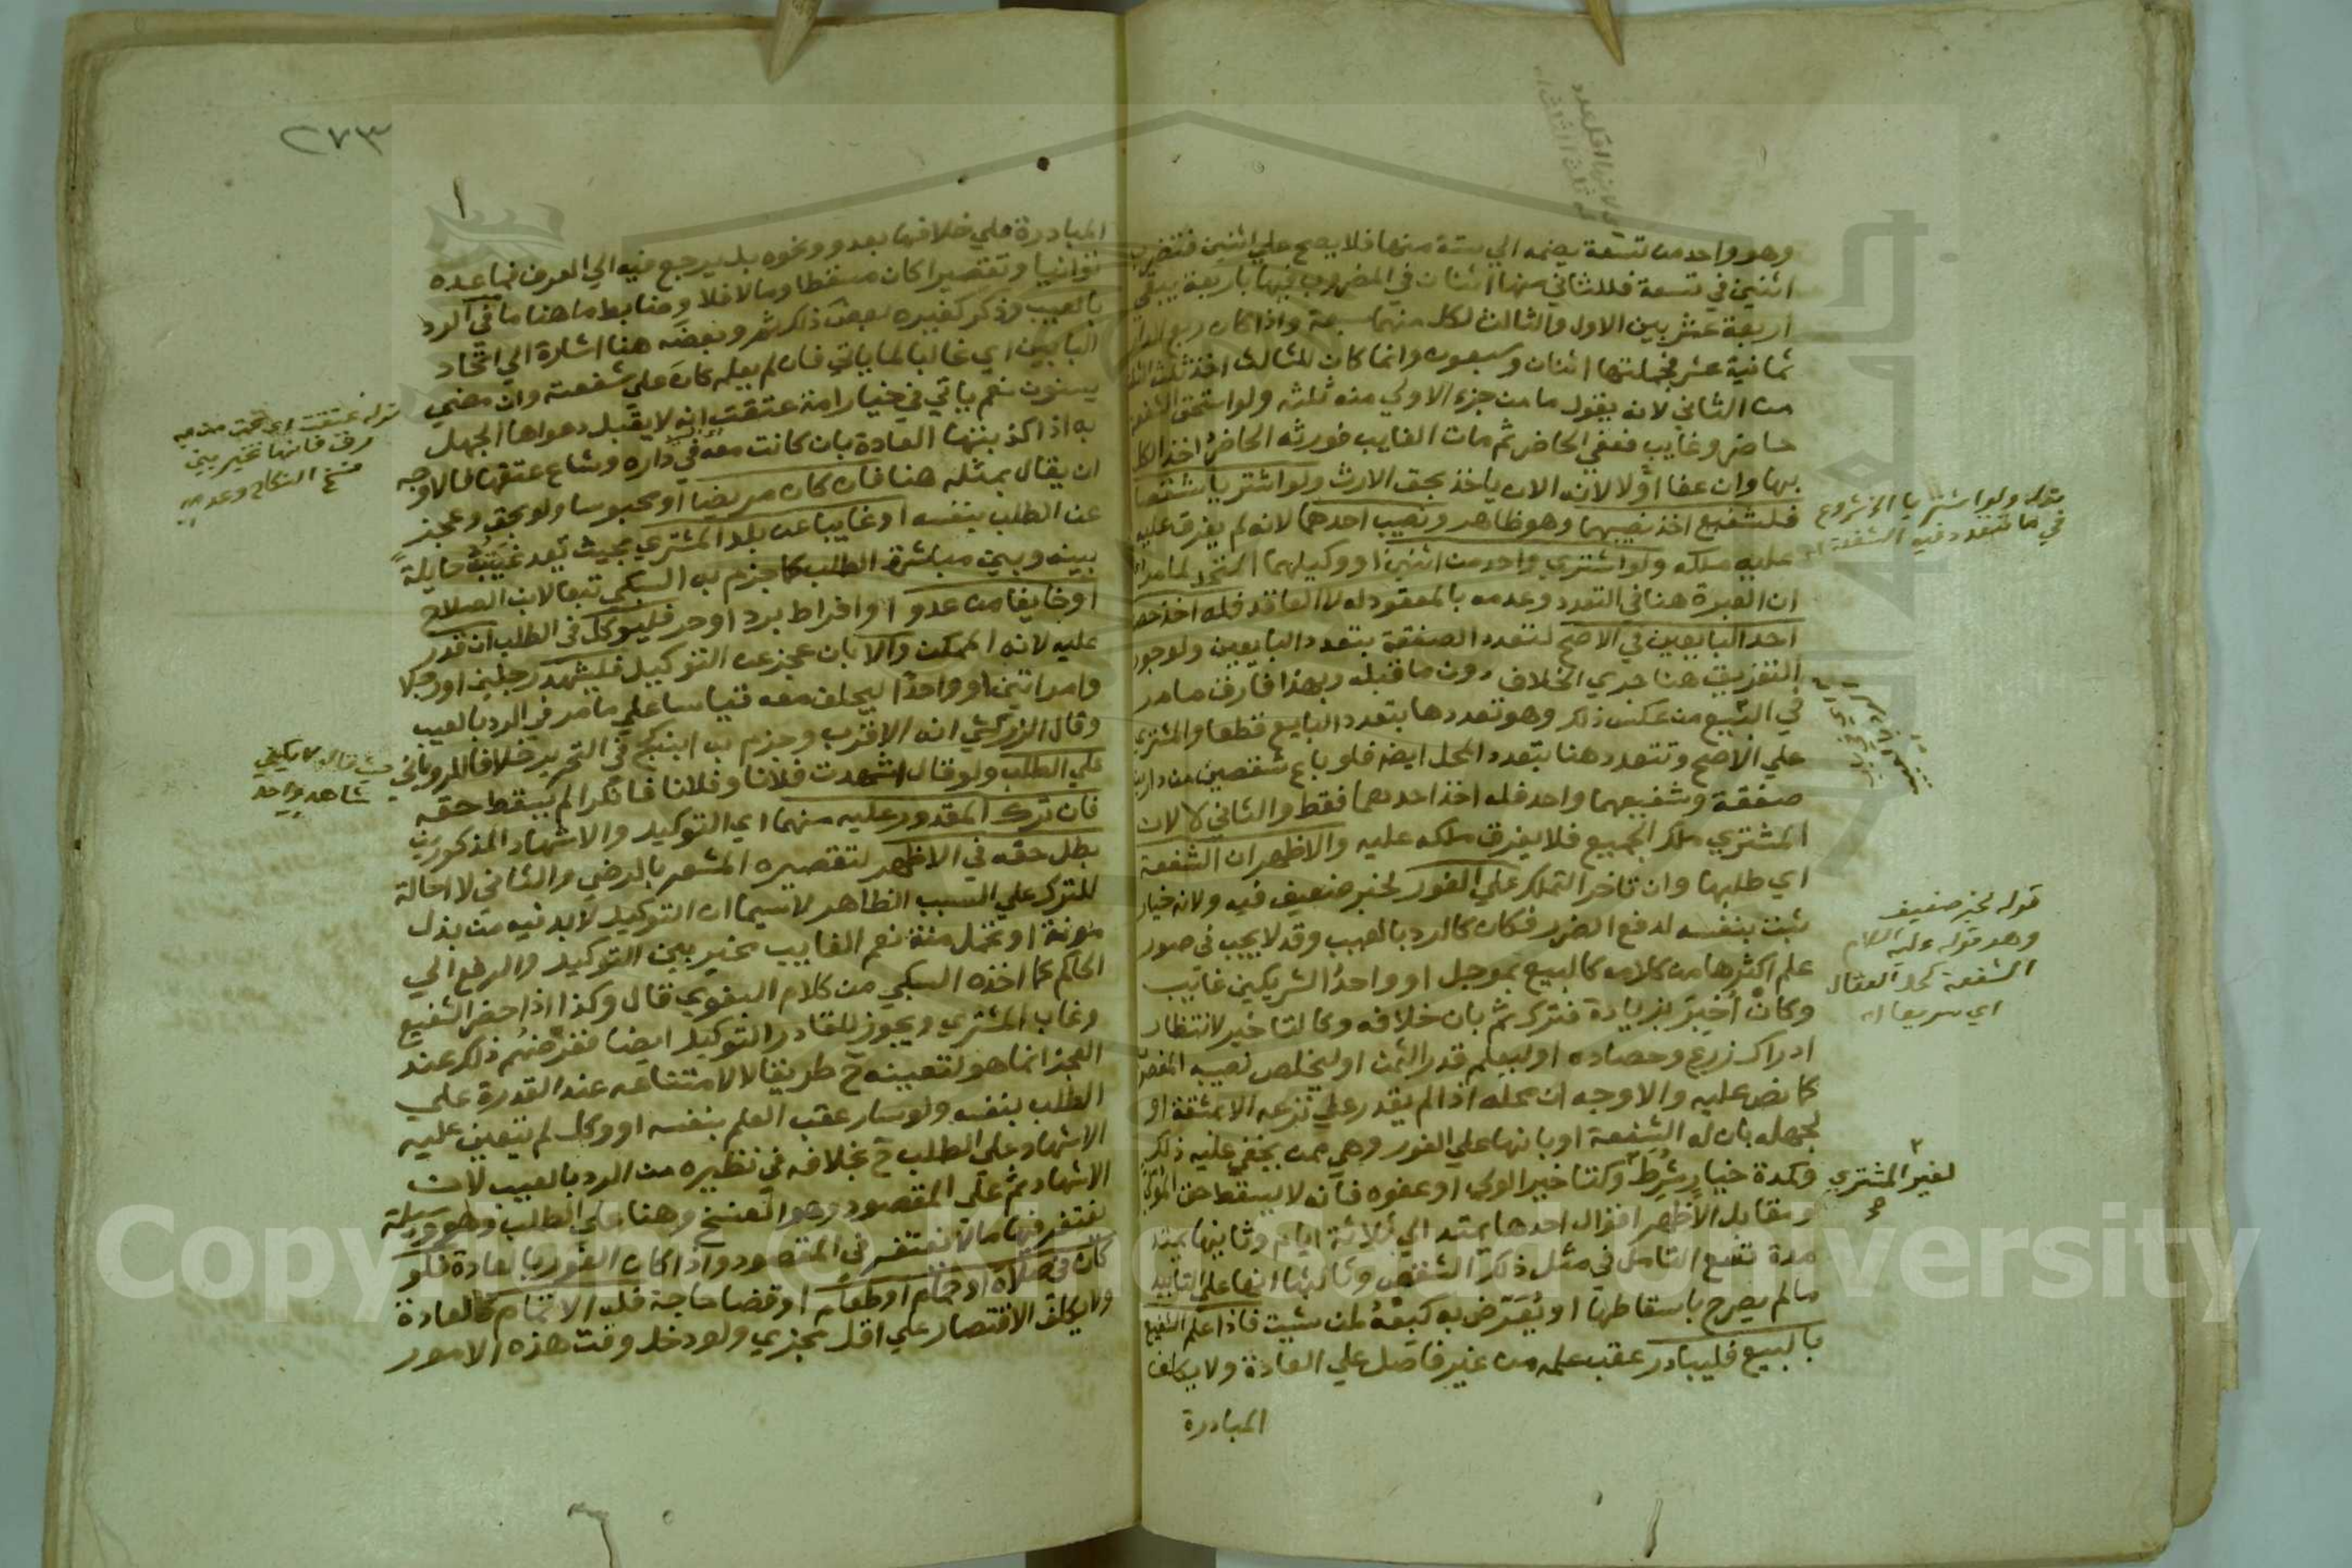 وهو واحد من تسعة يضمه الي ستة منها فلا يصح علي اثنين فتضرب
اثنين في تسعة فللثاني منها اثنان في المضروب فيها باربعة يبقي
اربعة عشر بين الاول والثالث لكل منهما سبعة واذا كان ربع الدار
ثمانية عشر فجملتها اثنان وسبعون وانما كان للثالث اخذ ثلث الثلث
من الثاني لانه يقول ما من جزء الا ولي منه ثلثه ولو استحق الشفعة
حاضر وغايب فعفي الحاضر ثم مات الغايب فورثه الحاضر اخذ الكل
بها وان عفا اولا لانه الان ياخذ بحق الارث ولو اشتريا شقصا
فللشفيع اخذ نصيبهما وهو ظاهر ونصيب احدهما لانه لم يفرق عليه
عليه ملكه ولو اشتري واحد من اثنين او وكيلهما المتحد لما مر
ان العبرة هنا في التعدد وعدمه بالمعقود له لا العاقد فله اخذ حصة
احد البايعين في الاصح لتعدد الصفقة بتعدد البايعين ولوجود
التفريق هنا جري الخلاف دون ما قبله وبهذا فارق ما مر
في البيع من عكس ذلك وهو تعددها بتعدد البايع قطعا والمشتري
علي الاصح وتتعدد هنا بتعدد المحل ايضا فلو باع شقصين من دارين
صفقة وشفيعهما واحد فله اخذ احدهما فقط والثاني لا لان
المشتري ملك الجميع فلا يفرق ملكه عليه والاظهر ان الشفعة
اي طلبها وان تاخر التملك علي الفور لخبر ضعيف فيه ولانه خيار
ثبت بنفسه لدفع الضرر فكان كالرد بالعيب وقد لا يجب في صور
علم اكثرها من كلامه كالبيع بموجل او واحد الشريكين غايب
وكان اخبر بزيادة فترك ثم بان خلافه وكالتاخير لانتظار
ادراك زرع وحصاده او ليعلم قدر الثمن او ليخلص نصيبه المغصوب
كما نص عليه والاوجه ان محله اذا لم يقدر علي نزعه الا بمشقة او
لجهله بان له الشفعة او بانها علي الفور وهي ممن يخفي عليه ذلك
وكمدة خيار شرط وكتاخير الولي او عفوه فانه لا يسقط حق المولي
ومقابل الاظهر اقوال احدها يمتد الي ثلاثة ايام وثانيها يمتد
مدة تسع التامل في مثل ذلك الشقص وثالثها انها علي التابيد
مالم يصرح باسقاطها او يعرض به كبعه لمن شيت فاذا علم الشفيع
بالبيع فليبادر عقب علمه من غير فاصل علي العادة ولا يكلف
المبادرة
قوله ولو اشتريا الخ شروع
في ما تتعدد فيه الشفعة
قوله لخبر ضعيف
وهو قوله عليه السلام
الشفعة كحل العقال
اي سريعا اه
لغير المشتري
صح
٢٧٣
المبادرة علي خلافها بعدو ونحوه بل يرجع فيه الي العرف فما عده
توانيا وتقصيرا كان مسقطا وما لا فلا وضابط ما هنا ما في الرد
بالعيب وذكر كغيره بعض ذلك ثم وبعضه هنا اشارة الي اتحاد
البابين اي غالبا لما ياتي فان لم يعلم كان علي شفعته وان مضي
سنون نعم ياتي في خيار امة عتقت انه لا يقبل دعواها الجهل
به اذا كذبتها العادة بان كانت معه في داره وشاع عتقها فالاوجه
ان يقال بمثله هنا فان كان مريضا او محبوسا ولو بحق وعجز
عن الطلب بنفسه او غايبا عن بلد المشتري بحيث تعد غيبته حايلة
بينه وبين مباشرة الطلب كما جزم به السبكي تبعا لابن الصلاح
او خايفا من عدو او افراط برد او حر فليوكل في الطلب ان قدر
عليه لانه الممكن والا بان عجز عن التوكيل فليشهد رجلين او رجلا
وامراتين او واحدا ليحلف معه قياسا علي ما مر في الرد بالعيب
وقال الزركشي انه الاقرب وجزم به ابن كج في التجريد خلافا للروياني
علي الطلب ولو قال اشهدت فلانا وفلانا فانكرا لم يسقط حقه
فان ترك المقدور عليه منهما اي التوكيل والاشهاد المذكورين
بطل حقه في الاظهر لتقصيره المشعر بالرضي والثاني لا احالة
للترك علي السبب الظاهر لاسيما ان التوكيل لابد فيه من بذل
مونة او تحمل منة نعم الغايب مخير بين التوكيل والرفع الي
الحاكم كما اخذه السبكي من كلام البغوي قال وكذا اذا حضر الشفيع
وغاب المشتري ويجوز للقادر التوكيل ايضا ففرضهم ذلك عند
العجز انما هو لتعيينه ح طريقا لا لامتناعه عند القدرة علي
الطلب بنفسه ولو سار عقب العلم بنفسه او وكل لم يتعين عليه
الاشهاد علي الطلب ح بخلافه في نظيره من الرد بالعيب لان
الاشهاد ثم علي المقصود وهو الفسخ وهنا علي الطلب وهو وسيلة
يغتفر فيها ما لا يغتفر في المقصود واذا كان الفور بالعادة فلو
كان في صلاة او حمام او طعام او قضا حاجة فله الاتمام كالعادة
ولا يكلف الاقتصار علي اقل مجزي ولو دخل وقت هذه الامور
قوله عتقت اي تحت من به
رق فانها تخير بين
فسخ النكاح وعدمه
حيث قال لا يكفي
شاهد واحد
Copyright © King Saud University